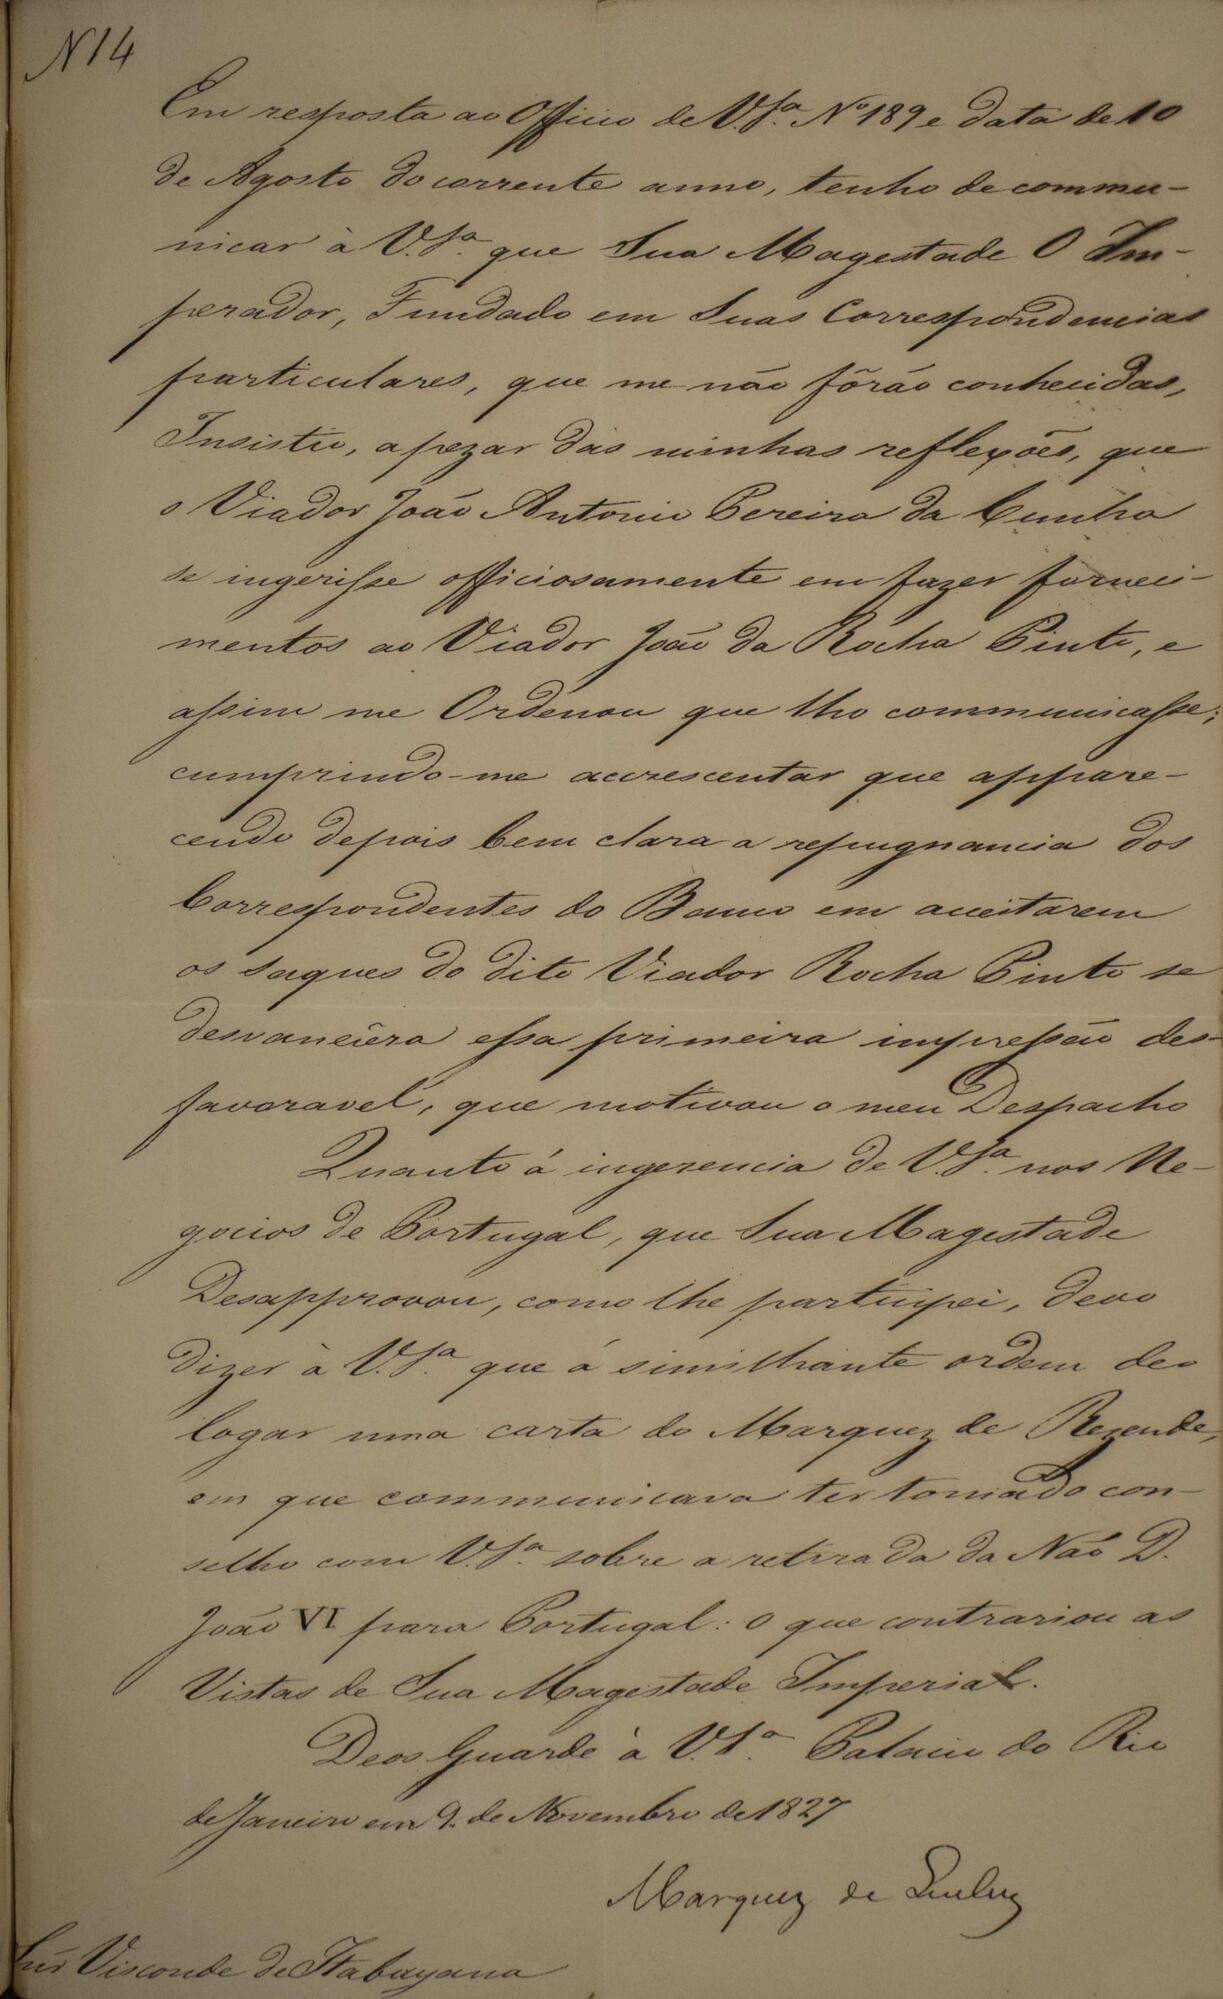 N 14
Em resposta ao Officio de V.Sª. Nº 189 e data de 10
de Agosto do corrente anno, tenho de commu-
nicar à V.Sª. que Sua Magestade O Im-
perador, Fundado em Suas Correspondencias
particulares, que me não fôrão conhecidas,
Insistio, apezar das minhas reflexões, que
o Viador João Antonio Pereira da Cunha
se ingerisse officiosamente em fazer forneci-
mentos ao Viador João da Rocha Pinto, e
assim me Ordenou que lho communicasse;
cumprindo-me accrescentar que appare-
cendo depois bem clara a repugnancia dos
Correspondentes do Banco em aceitarem
os saques do dito Viador Rocha Pinto se
desvanecêra essa primeira impressão des-
favoravel, que motivou o meu Despacho
Quanto á ingerencia de V.Sª. nos Ne-
gocios de Portugal, que Sua Magestade
Desapprovou, como lhe participei, devo
dizer à V.Sª. que á similhante ordem deo
logar uma carta do Marquez de Rezende,
em que communicava ter tomado con-
selho com V.Sª. sobre a retirada da Náo D.
João VI para Portugal: o que contrariou as
Vistas de Sua Magestade Imperial.
Deos Guarde à V.Sª. Palacio do Rio
de Janeiro em 9 de Novembro de 1827
Marquez de Queluz
Snr Visconde de Itabayana